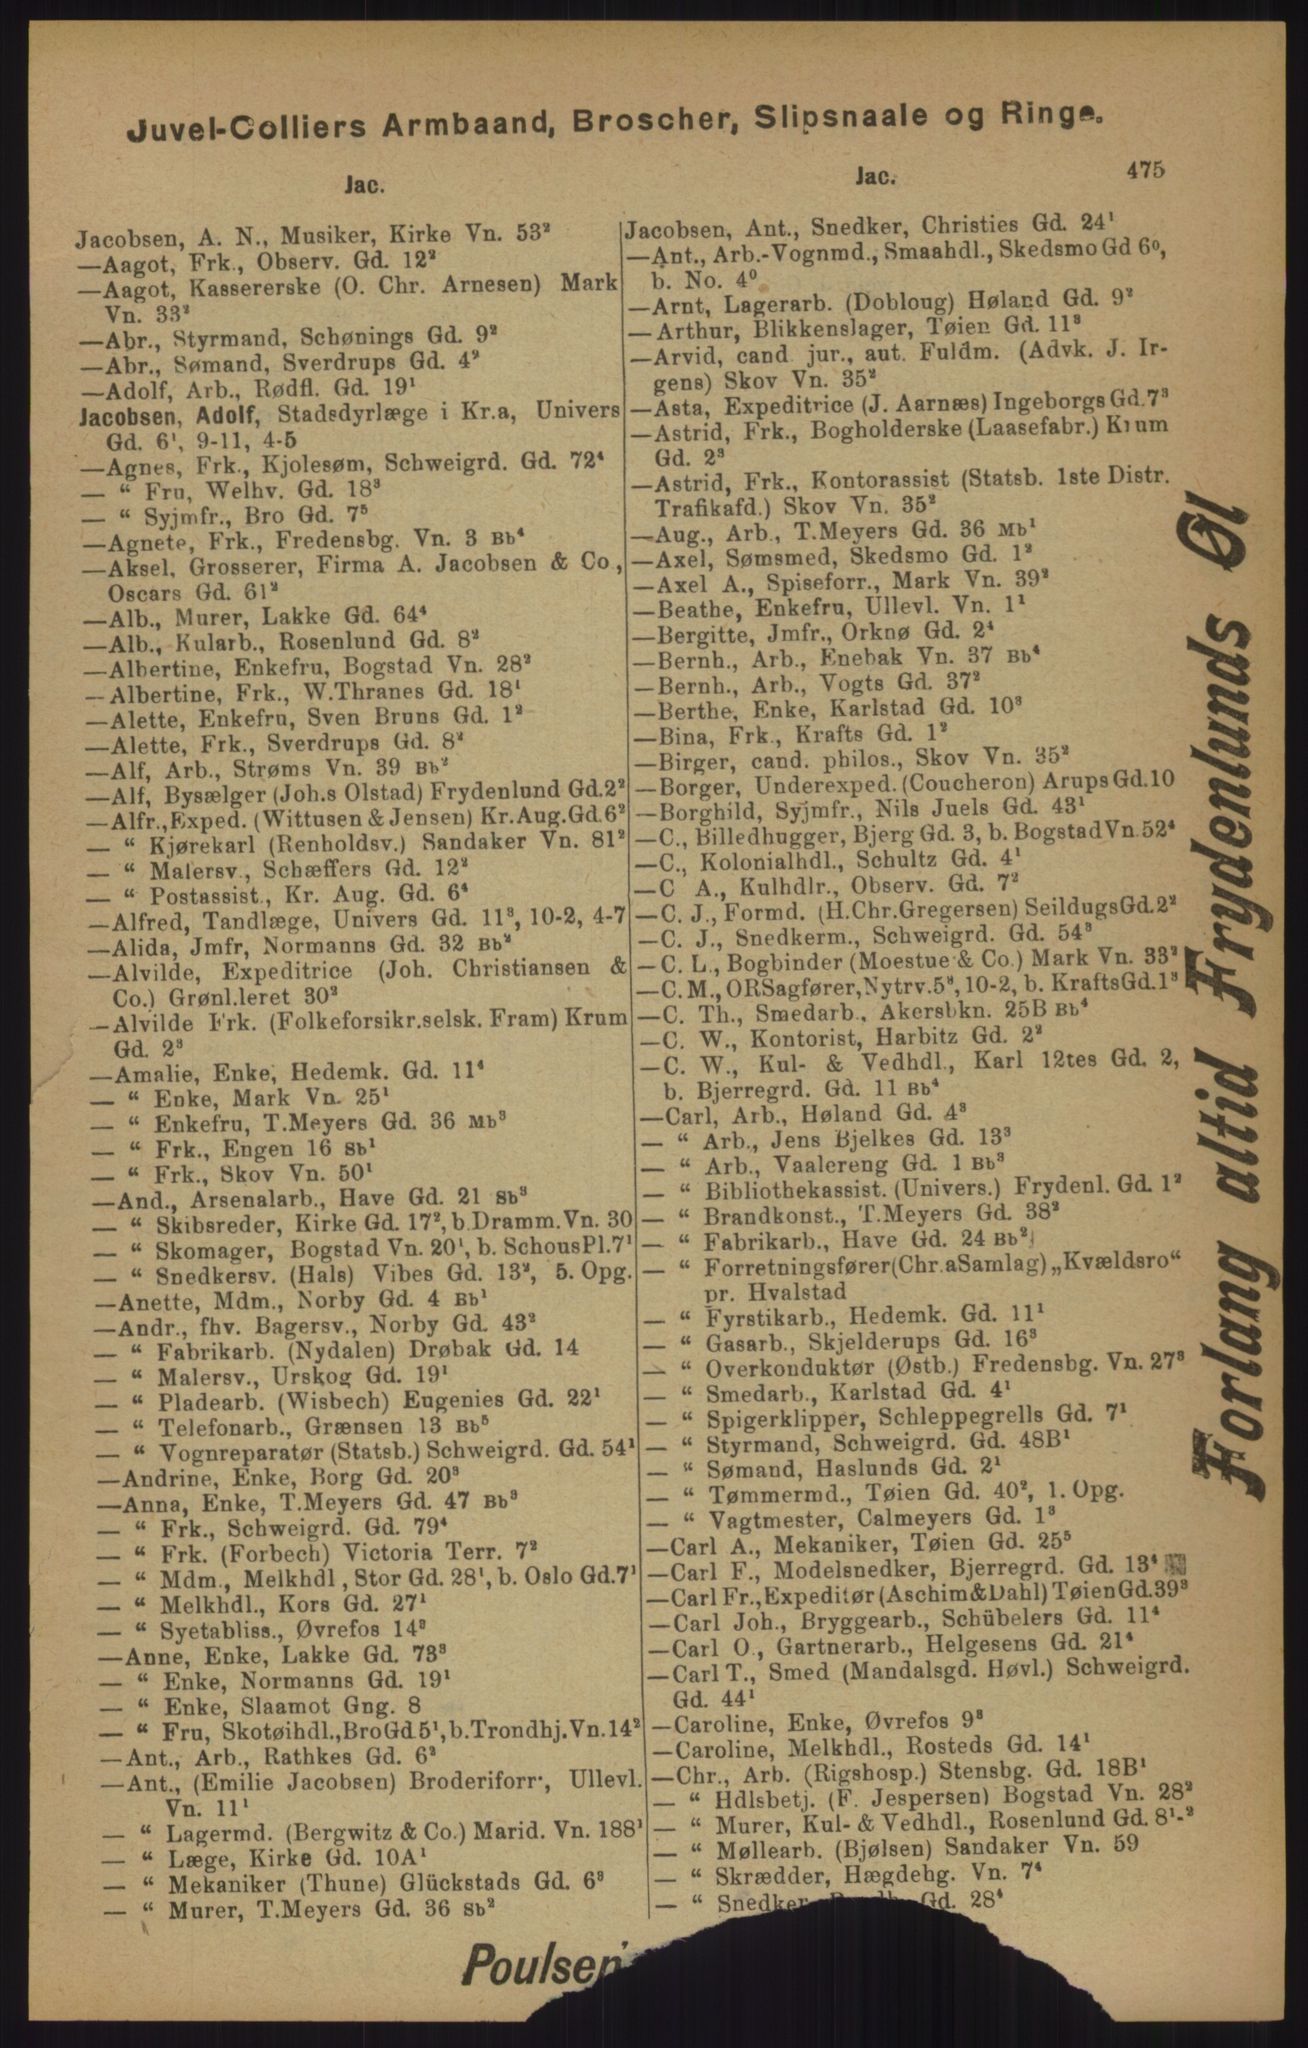 Juvel-Colliers Armbaand, Broscher, Slipsnaale og Ringe.
Jac.
Jac.
475
Jacobsen, A. N., Musiker, Kirke Vn. 53²
—Aagot, Frk., Observ. Gd. 12²
—Aagot, Kassererske (O. Chr. Arnesen) Mark
Vn. 33²
—Abr., Styrmand, Schønings Gd. 9²
—Abr., Sømand, Sverdrups Gd. 4²
—Adolf, Arb., Rødfl. Gd. 19¹
Jacobsen, Adolf, Stadsdyrlæge i Kr.a, Univers
Gd. 6¹, 9-11, 4-5
—Agnes, Frk., Kjolesøm, Schweigrd. Gd. 72⁴
— “ Fru, Welhv. Gd. 18³
— “ Syjmfr., Bro Gd. 7⁵
—Agnete, Frk., Fredensbg. Vn. 3 Bb⁴
—Aksel, Grosserer, Firma A. Jacobsen & Co.,
Oscars Gd. 61²
—Alb., Murer, Lakke Gd. 64⁴
—Alb., Kularb., Rosenlund Gd. 8²
—Albertine, Enkefru, Bogstad Vn. 28²
—Albertine, Frk., W.Thranes Gd. 18¹
—Alette, Enkefru, Sven Bruns Gd. 1²
—Alette, Frk., Sverdrups Gd. 8²
—Alf, Arb., Strøms Vn. 39 Bb²
—Alf, Bysælger (Joh.s Olstad) Frydenlund Gd.2²
—Alfr., Exped. (Wittusen & Jensen) Kr.Aug.Gd.6²
— “ Kjørekarl (Renholdsv.) Sandaker Vn. 81²
— “ Malersv., Schæffers Gd. 12²
— “ Postassist., Kr. Aug. Gd. 6⁴
—Alfred, Tandlæge, Univers Gd. 11³, 10-2, 4-7
—Alida, Jmfr, Normanns Gd. 32 Bb²
—Alvilde, Expeditrice (Joh. Christiansen &
Co.) Grønl.leret 30²
—Alvilde Frk. (Folkeforsikr.selsk. Fram) Krum
Gd. 2³
—Amalie, Enke, Hedemk. Gd. 11⁴
— “ Enke, Mark Vn. 25¹
— “ Enkefru, T.Meyers Gd. 36 Mb³
— “ Frk., Engen 16 Sb¹
— “ Frk., Skov Vn. 50¹
—And., Arsenalarb., Have Gd. 21 Sb³
— “ Skibsreder, Kirke Gd. 17², b.Dramm.Vn. 30
— “ Skomager, Bogstad Vn. 20¹, b. SchousPl.7¹
— “ Snedkersv. (Hals) Vibes Gd. 13², 5. Opg.
—Anette, Mdm., Norby Gd. 4 Bb¹
—Andr., fhv. Bagersv., Norby Gd. 43²
— “ Fabrikarb. (Nydalen) Drøbak Gd. 14
— “ Malersv., Urskog Gd. 19¹
— “ Pladearb. (Wisbech) Eugenies Gd. 22¹
— “ Telefonarb., Grænsen 13 Bb⁵
— “ Vognreparatør (Statsb.) Schweigrd. Gd. 54¹
—Andrine, Enke, Borg Gd. 20³
—Anna, Enke, T.Meyers Gd. 47 Bb³
— “ Frk., Schweigrd. Gd. 79⁴
— “ Frk. (Forbech) Victoria Terr. 7²
— “ Mdm., Melkhdl, Stor Gd. 28¹, b. Oslo Gd.7¹
— “ Melkhdl., Kors Gd. 27¹
— “ Syetabliss., Øvrefos 14³
—Anne, Enke, Lakke Gd. 73³
— “ Enke, Normanns Gd. 19¹
— “ Enke, Slaamot Gng. 8
— “ Fru, Skotøihdl., BroGd.5¹, b.Trondhj.Vn.14²
—Ant., Arb., Rathkes Gd. 6²
—Ant., (Emilie Jacobsen) Broderiforr., Ullevl.
Vn. 11¹
— “ Lagermd. (Bergwitz & Co.) Marid. Vn. 188¹
— “ Læge, Kirke Gd. 10A¹
— “ Mekaniker (Thune) Glückstads Gd. 6³
— “ Murer, T.Meyers Gd. 36 Sb²
Jacobsen, Ant., Snedker, Christies Gd. 24¹
—Ant., Arb.-Vognmd., Smaahdl., Skedsmo Gd 6⁰,
b. No. 4⁰
—Arnt, Lagerarb. (Dobloug) Høland Gd. 9²
—Arthur, Blikkenslager, Tøien Gd. 11³
—Arvid, cand. jur., aut. Fuldm. (Advk. J. Ir-
gens) Skov Vn. 35²
—Asta, Expeditrice (J. Aarnæs) Ingeborgs Gd.7³
—Astrid, Frk., Bogholderske (Laasefabr.) Krum
Gd. 2³
—Astrid, Frk., Kontorassist (Statsb. 1ste Distr.
Trafikafd.) Skov Vn. 35²
—Aug., Arb., T.Meyers Gd. 36 Mb¹
—Axel, Sømsmed, Skedsmo Gd. 1²
—Axel A., Spiseforr., Mark Vn. 39²
—Beathe, Enkefru, Ullevl. Vn. 1¹
—Bergitte, Jmfr., Orknø Gd. 2⁴
—Bernh., Arb., Enebak Vn. 37 Bb⁴
—Bernh., Arb., Vogts Gd. 37²
—Berthe, Enke, Karlstad Gd. 10³
—Bina, Frk., Krafts Gd. 1²
—Birger, cand. philos., Skov Vn. 35²
—Borger, Underexped. (Coucheron) Arups Gd.10
—Borghild, Syjmfr., Nils Juels Gd. 43¹
—C., Billedhugger, Bjerg Gd. 3, b. BogstadVn.52⁴
—C., Kolonialhdl., Schultz Gd. 4¹
—C A., Kulhdlr., Observ. Gd. 7²
—C. J., Formd. (H.Chr.Gregersen) SeildugsGd.2²
—C. J., Snedkerm., Schweigrd. Gd. 54³
—C. L., Bogbinder (Moestue & Co.) Mark Vn. 33²
—C.M., ORSagfører, Nytrv.5³, 10-2, b. KraftsGd.1³
—C. Th., Smedarb., Akersbkn. 25B Bb⁴
—C. W., Kontorist, Harbitz Gd. 2²
—C. W., Kul- & Vedhdl., Karl 12tes Gd. 2,
b. Bjerregrd. Gd. 11 Bb⁴
—Carl, Arb., Høland Gd. 4³
— “ Arb., Jens Bjelkes Gd. 13³
— “ Arb., Vaalereng Gd. 1 Bb³
— “ Bibliothekassist. (Univers.) Frydenl. Gd. 1²
— “ Brandkonst., T.Meyers Gd. 38²
— “ Fabrikarb., Have Gd. 24 Bb²
— “ Forretningsfører (Chr.aSamlag) „Kvældsro“
pr. Hvalstad
— “ Fyrstikarb., Hedemk. Gd. 11¹
— “ Gasarb., Skjelderups Gd. 16³
— “ Overkonduktør (Østb.) Fredensbg. Vn. 27³
— “ Smedarb., Karlstad Gd. 4¹
— “ Spigerklipper, Schleppegrells Gd. 7¹
— “ Styrmand, Schweigrd. Gd. 48B¹
— “ Sømand, Haslunds Gd. 2¹
— “ Tømmermd., Tøien Gd. 40², 1. Opg.
— “ Vagtmester, Calmeyers Gd. 1³
—Carl A., Mekaniker, Tøien Gd. 25⁵
—Carl F., Modelsnedker, Bjerregrd. Gd. 13⁴
—Carl Fr., Expeditør (Aschim&Dahl) TøienGd.39³
—Carl Joh., Bryggearb., Schübelers Gd. 11⁴
—Carl O., Gartnerarb., Helgesens Gd. 21⁴
—Carl T., Smed (Mandalsgd. Høvl.) Schweigrd.
Gd. 44¹
—Caroline, Enke, Øvrefos 9³
—Caroline, Melkhdl., Rosteds Gd. 14¹
—Chr., Arb. (Rigshosp.) Stensbg. Gd. 18B¹
— “ Hdlsbetj. (F. Jespersen) Bogstad Vn. 28²
— “ Murer, Kul- & Vedhdl., Rosenlund Gd. 8¹-²
— “ Møllearb. (Bjølsen) Sandaker Vn. 59
— “ Skrædder, Hægdehg. Vn. 7⁴
— “ Snedker Gd. 28⁴
Forlang altid Frydenlunds Øl
Poulsen